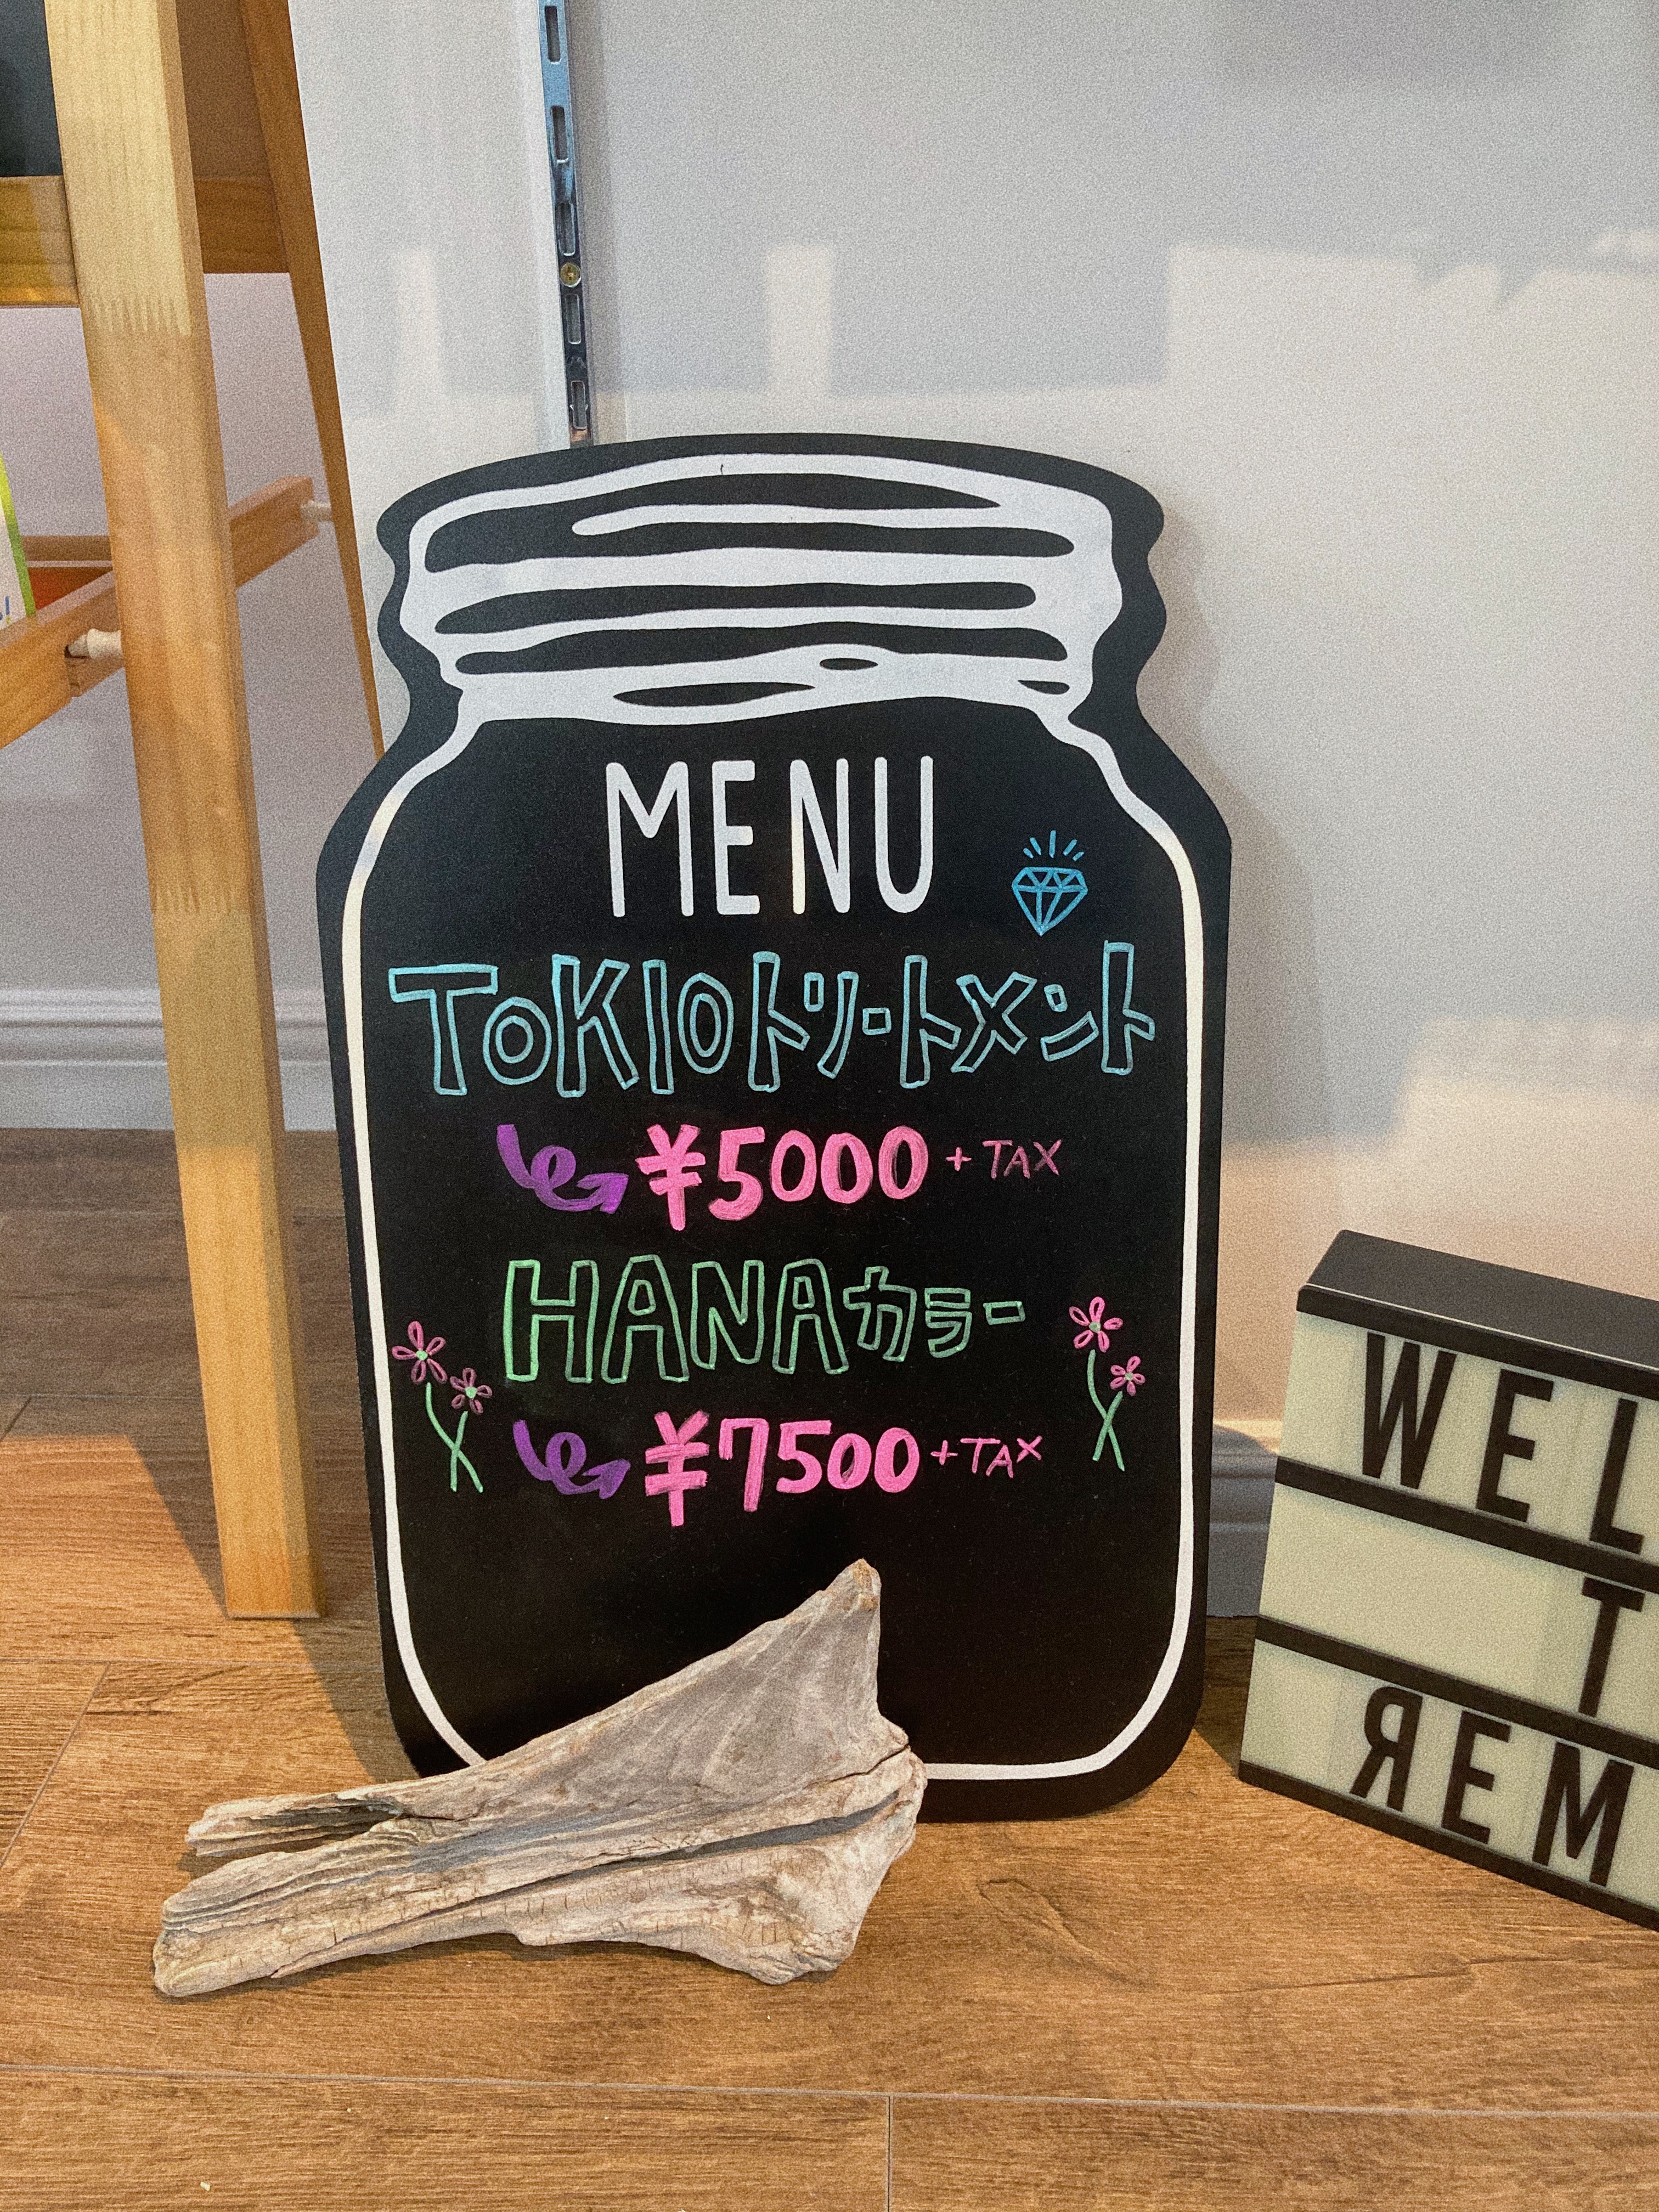 MENU
TOKIOトリートメント
¥5000 + TAX
HANAカラー
¥7500 + TAX
WEL
T
ЯEM